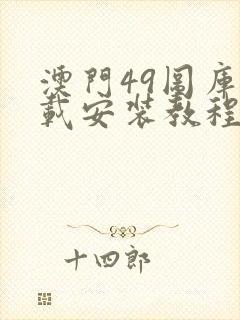 澳門49圖庫
載安裝教程
十四郎